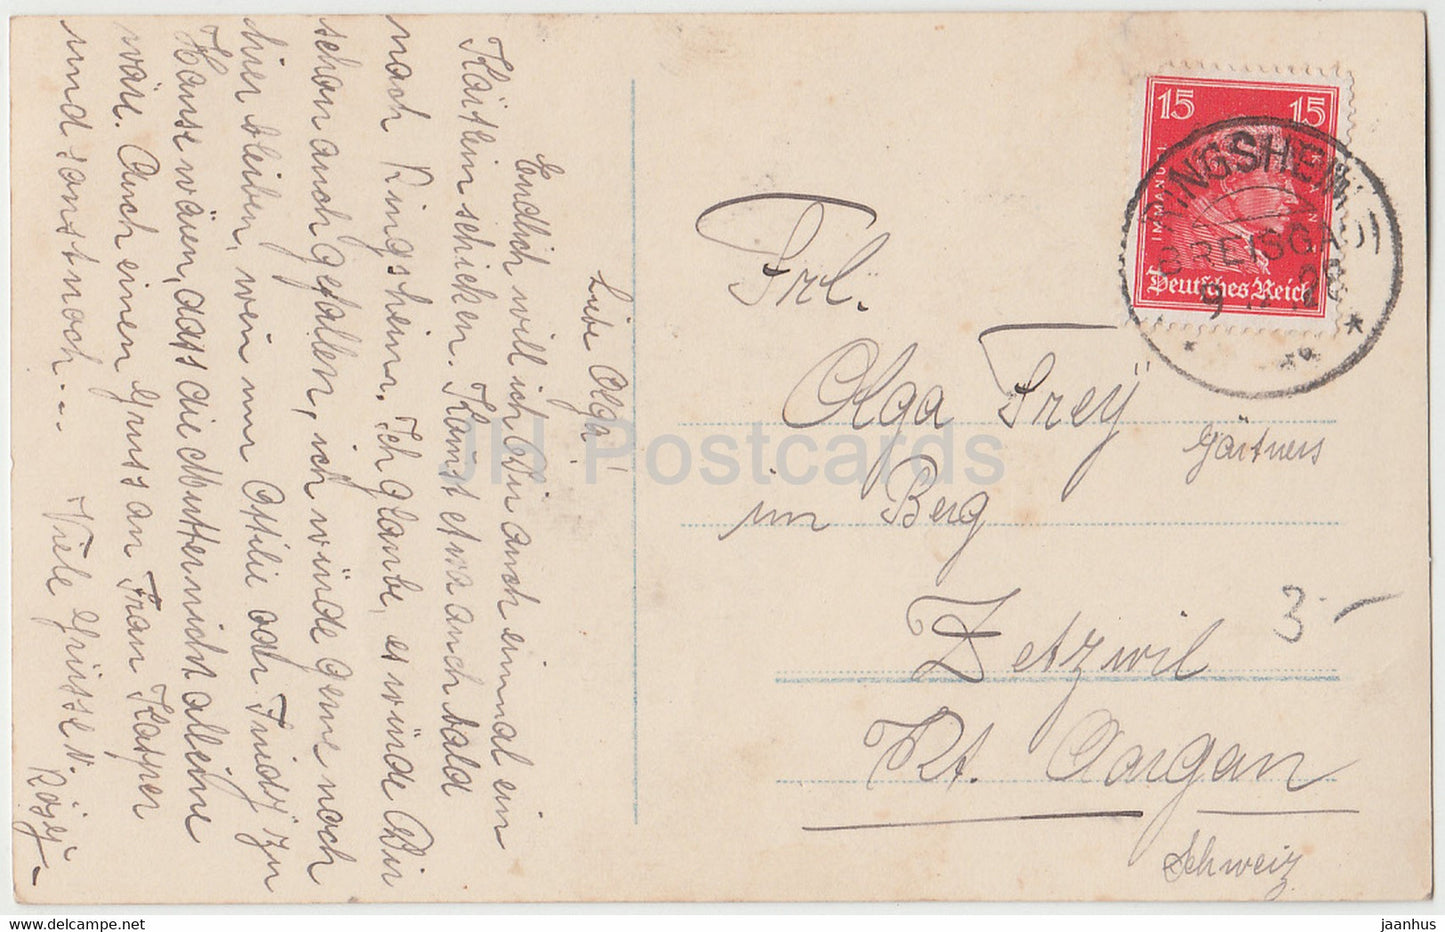 Liebe Olga!
Endlich will ich Dir auch einmal ein
Kärtlein schicken. Kannst etwa auch bald
nach Ringsheim. Ich glaube, es würde Dir
schon auch gefallen, ich würde gerne noch
hier bleiben, wen nur Ottilie oder Friedÿ zu
Hause wären, dass die Mutter nicht alleine
wäre. Auch einen Gruss an Frau Kasper
und sonst noch...
Viele Grüsse v.
Rösÿ.
15 15
IMMANUEL KANT
Deutsches Reich
RINGSHEIM
(BREISGAU)
9 28
Frl.
Olga Freÿ
Gärtners
im Berg
Zetzwil
3.-
Kt. Aargau
Schweiz
JH Postcards
jaanhus
www.delcampe.net